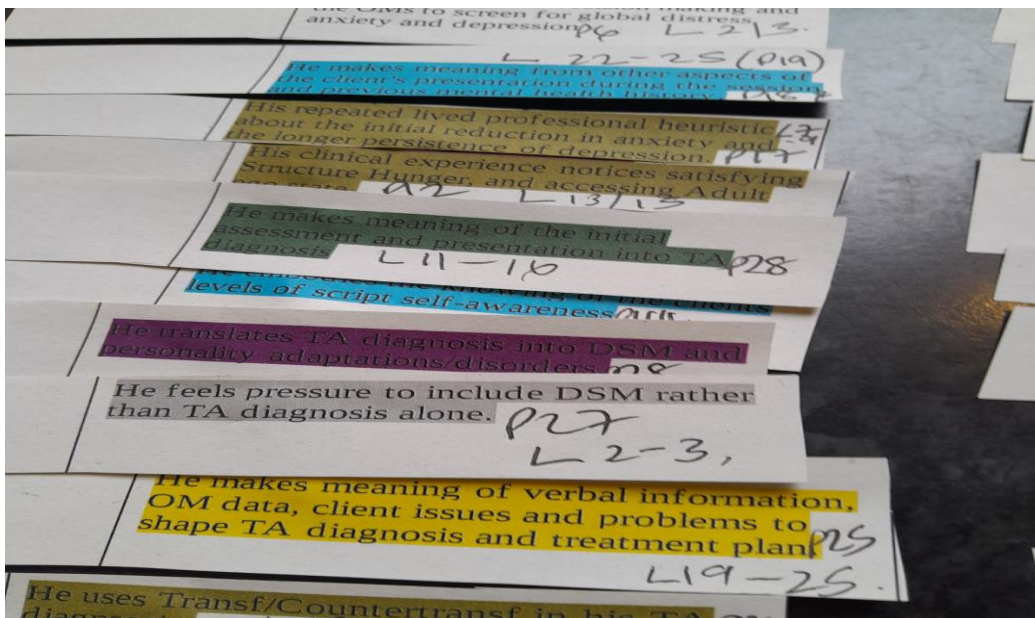 the OMs to screen for global distress,
anxiety and depression p6 L 213.
L 22-25 (p19)
He makes meaning from other aspects of
the client's presentation during the session
and previous mental health history.
His repeated lived professional heuristic
about the initial reduction in anxiety and
the longer persistence of depression. p17
His clinical experience notices satisfying
Structure Hunger, and accessing Adult
ego state L 13/15
He makes meaning of the initial
assessment and presentation into TA
diagnosis p28
L 11-16
levels of script self-awareness
He translates TA diagnosis into DSM and
personality adaptations/disorders
He feels pressure to include DSM rather
than TA diagnosis alone. p27
L 2-3,
He makes meaning of verbal information,
OM data, client issues and problems to
shape TA diagnosis and treatment plan. p25
L19-25.
He uses Transf/Countertransf in his TA